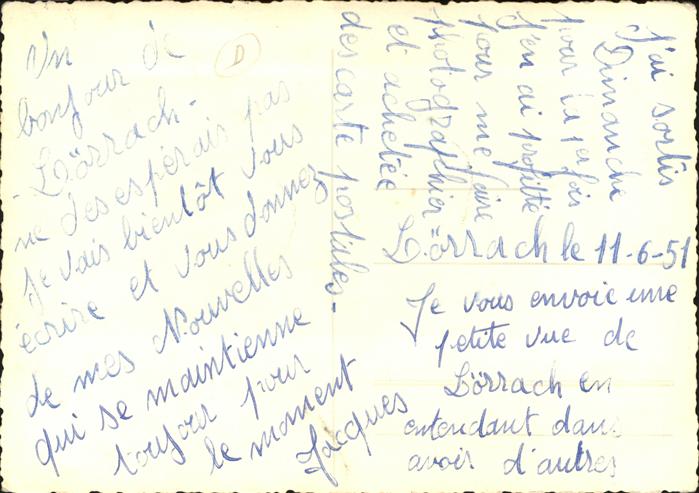 Lörrach le 11-6-51
Je vous envoie une
petite vue de
Lörrach en
entendant dans
avoir d'autres
J'ai sortis
Dimanche
pour la 1er fois
J'en ai profitté
pour me faire
photographier
et achetée
des carte postales-
D
Un
bonjour de
Lörrach-
ne desespérais pas
Je vais bientôt vous
écrire et vous donnez
de mes Nouvelles
qui se maintienne
toujour pour
le moment
Jacques